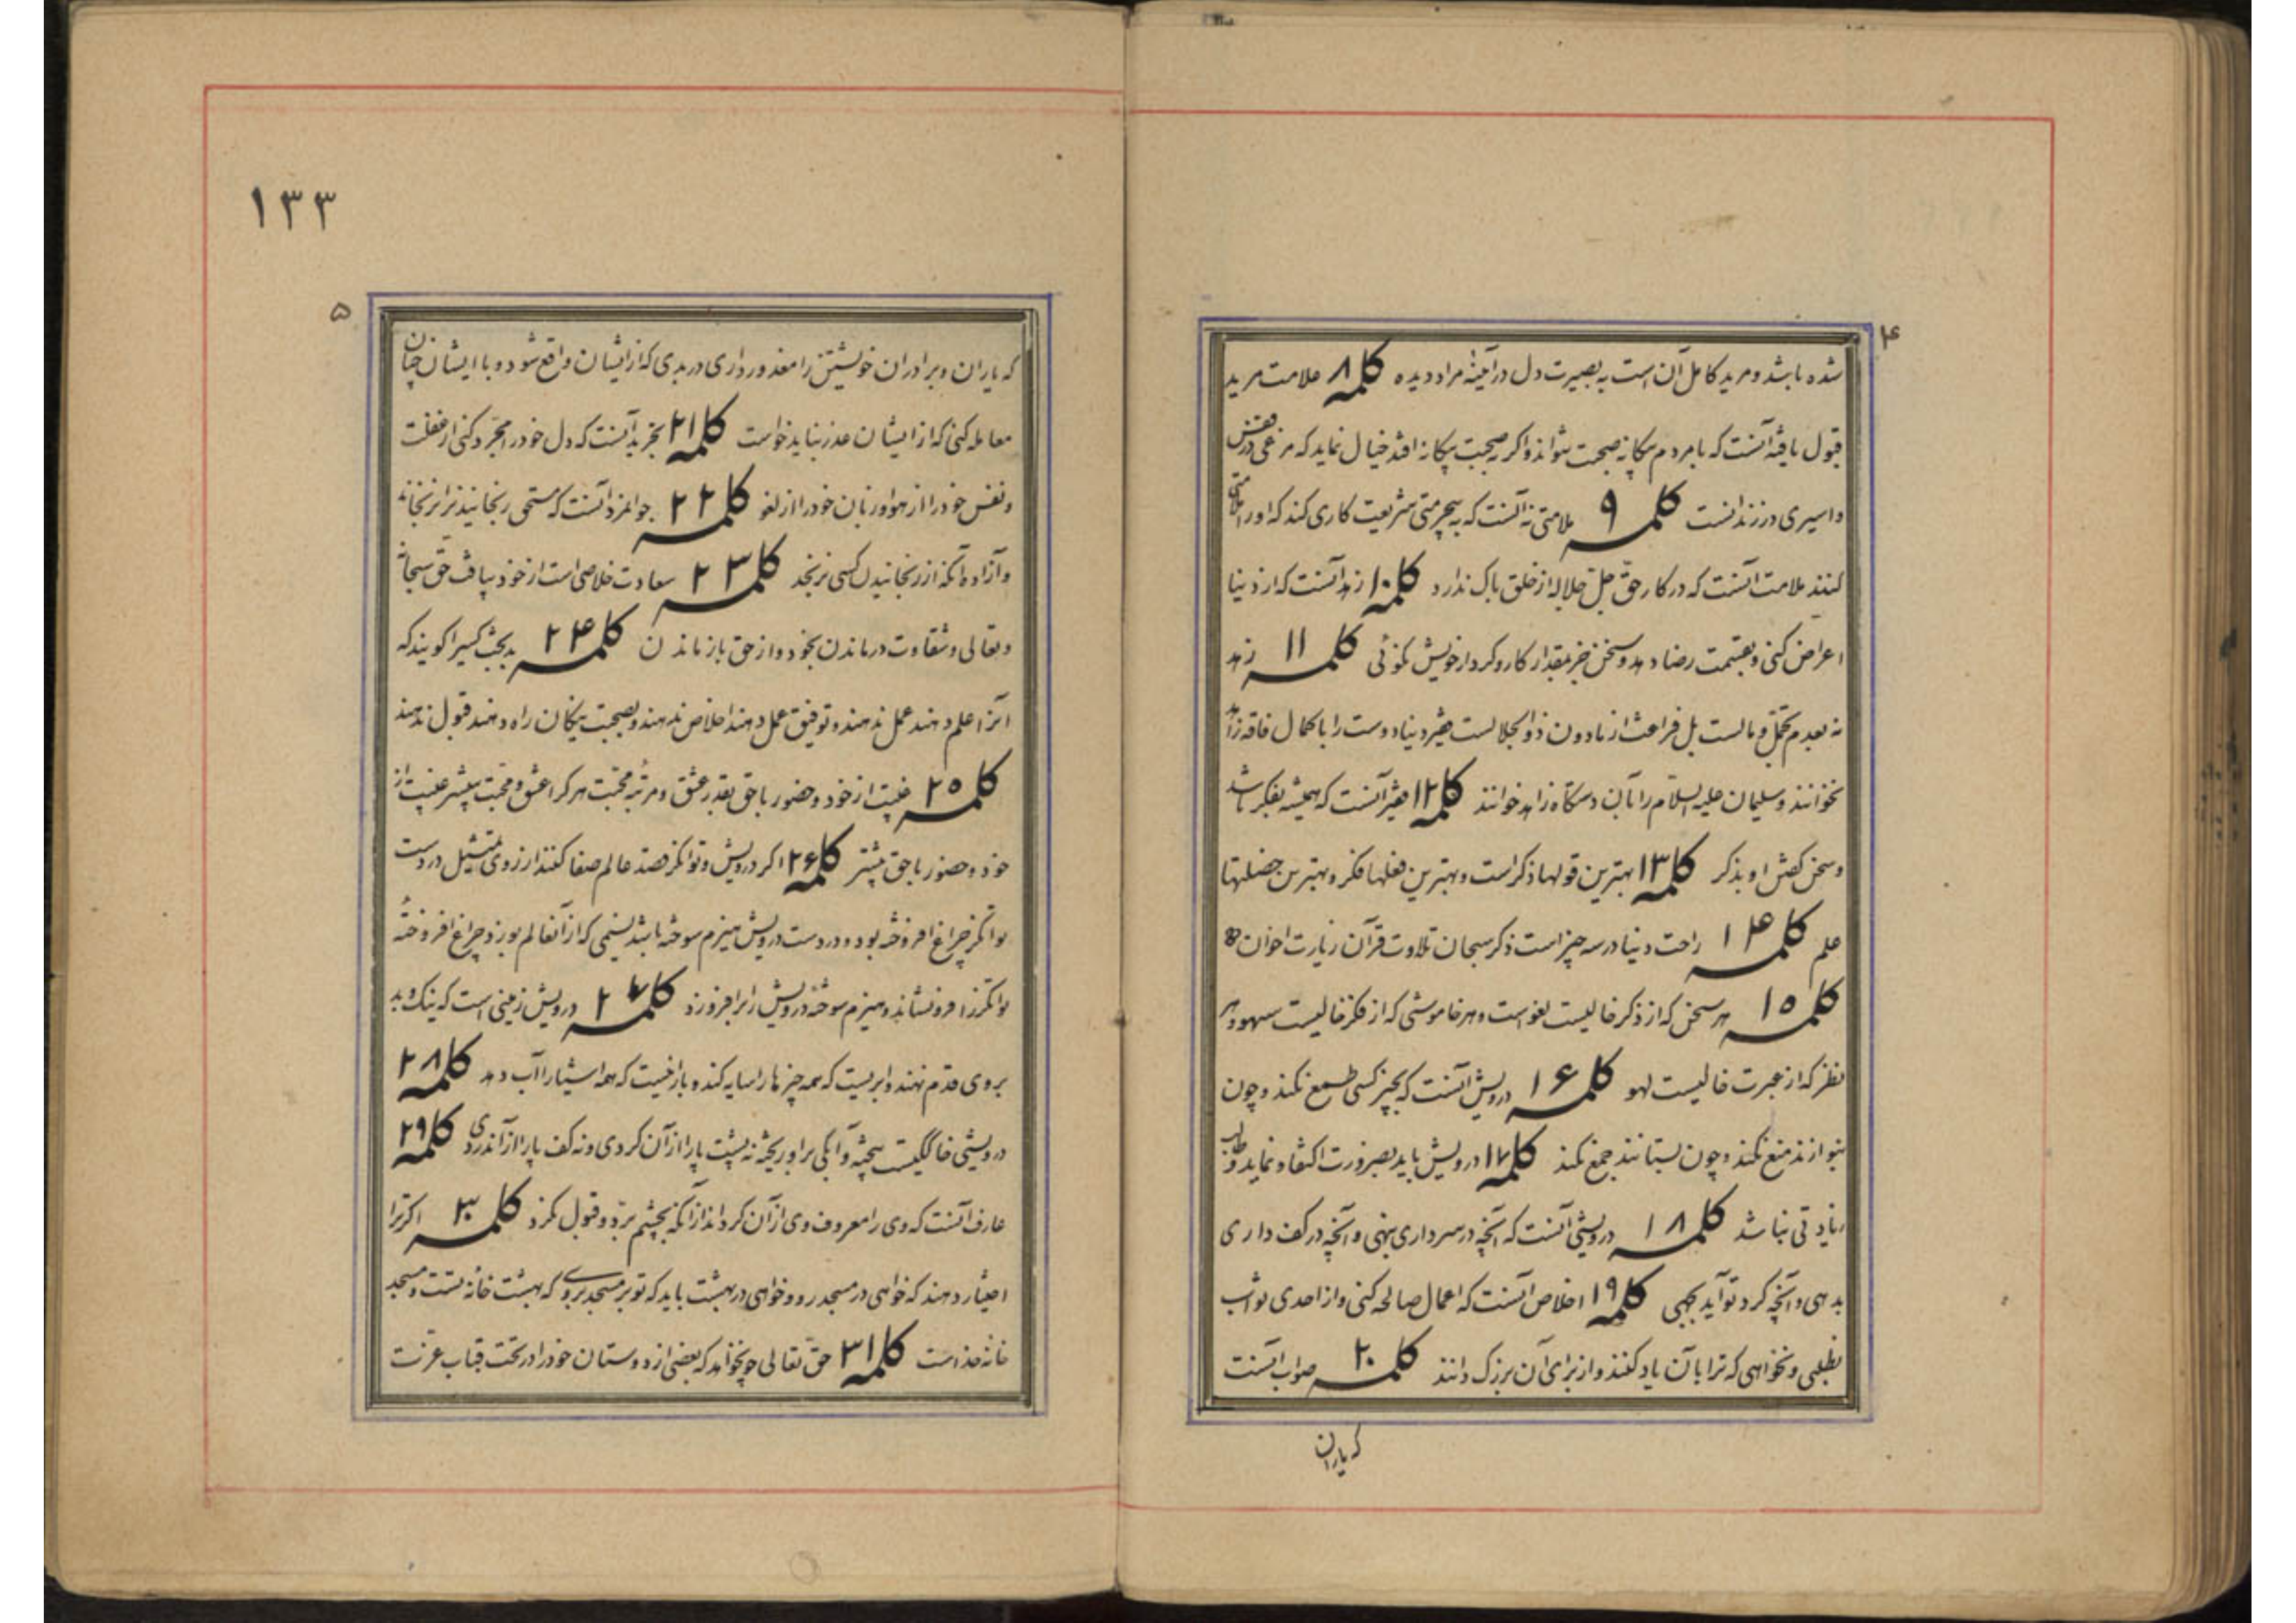 ۴
شده باشد و مرید کامل آن است به بصیرت دل در آینه مراد دیده کلمه ۸ علامت مرید
قبول یافته آنست که با مردم بیگانه صحبت نتواند و اگر به صحبت بیگانه افتد خیال نماید که مرغی در قفس
و اسیری در زندانست کلمه ۹ ملامتی نه آنست که به بیحرمتی شریعت کاری کند که او را ملامتی
کنند ملامت آنست که در کار حق جل جلاله از خلق باک ندارد کلمه ۱۰ زهد آنست که از دنیا
اعراض کنی و بقسمت رضا دهد و سخن جز بمقدار کار و کردار خویش نگوئی کلمه ۱۱ زهد
نه بعدم تجمل و مالست بل فراغت از مادون ذو الجلالست فقیر دنیا دوست را با کمال فاقه زاهد
نخوانند و سلیمان علیه السلام را با آن دستگاه زاهد خوانند کلمه ۱۲ فقیر آنست که همیشه بفکر باشد
و سخن گفتن او بذکر کلمه ۱۳ بهترین قولها ذکر است و بهترین فعلها فکر و بهترین خصلتها
علم کلمه ۱۴ راحت دنیا در سه چیز است ذکر سبحان تلاوت قرآن زیارت اخوان
کلمه ۱۵ هر سخن که از ذکر خالیست لغو است و هر خاموشی که از فکر خالیست سهو و هر
نظر که از عبرت خالیست لهو کلمه ۱۶ درویش آنست که بچیز کسی طمع نکند و چون
بنوازند منع نکند و چون بستانند جمع نکند کلمه ۱۷ درویش باید بضرورت اکتفا نماید و طالب
زیادتی نباشد کلمه ۱۸ درویشی آنست که آنچه در سر داری بنهی و آنچه در کف داری
بدهی و آنچه کرد تو آید نجهی کلمه ۱۹ اخلاص آنست که اعمال صالحه کنی و از احدی ثواب
نطلبی و نخواهی که ترا بآن یاد کنند و از برای آن بزرگ دانند کلمه ۲۰ صواب آنست
که یاران
۱۳۳
۵
که یاران و برادران خویشتن را معذور داری در بدی که از ایشان واقع شود و با ایشان چنان
معامله کنی که از ایشان عذر نباید خواست کلمه ۲۱ تجرید آنست که دل خود را مجرد کنی از غفلت
و نفس خود را از هوا و زبان خود را از لغو کلمه ۲۲ جوانمرد آنست که مستحق رنجانیدن را نرنجاند
و آزاده آنکه از رنجانیدن کسی نرنجد کلمه ۲۳ سعادت خلاصی است از خود بیافت حق سبحانه
و تعالی و شقاوت درماندن بخود و از حق باز ماندن کلمه ۲۴ بدبخت کسی را گویند که
آنرا علم دهند عمل ندهند و توفیق عمل دهند اخلاص ندهند و بصحبت نیکان راه دهند قبول ندهند
کلمه ۲۵ غیبت از خود و حضور با حق بقدر عشق و مرتبه محبت هر کرا عشق و محبت بیشتر غیبت از
خود و حضور با حق بیشتر کلمه ۲۶ اگر درویش و توانگر قصد عالم صفا کنند از روی تمثیل در دست
توانگر چراغ افروخته بود و در دست درویش هیزم سوخته باشد نسیمی که از آنعالم بوزد چراغ افروخته
توانگر را فرو نشاند و هیزم سوخته درویش را برافروزد کلمه ۲۷ درویش زمینی است که نیک و بد
بروی قدم نهند و ابریست که همه چیز ها را سایه کند و بارانیست که همه اشیا را آب دهد کلمه ۲۸
درویشی خاکیست بیخته و آبکی بر او ریخته نه پشت پا را از آن گردی و نه کف پا را از آن دردی کلمه ۲۹
عارف آنست که وی را معروف وی از آن گرداند از آنکه بچشم برد و قبول نگرد کلمه ۳۰ اگر ترا
اختیار دهند که خواهی در مسجد رو و خواهی در بهشت باید که تو بر مسجد بروی که بهشت خانه تست و مسجد
خانه خداست کلمه ۳۱ حق تعالی چو نخواهد که بعضی از دوستان خود را در تحت قباب عزت